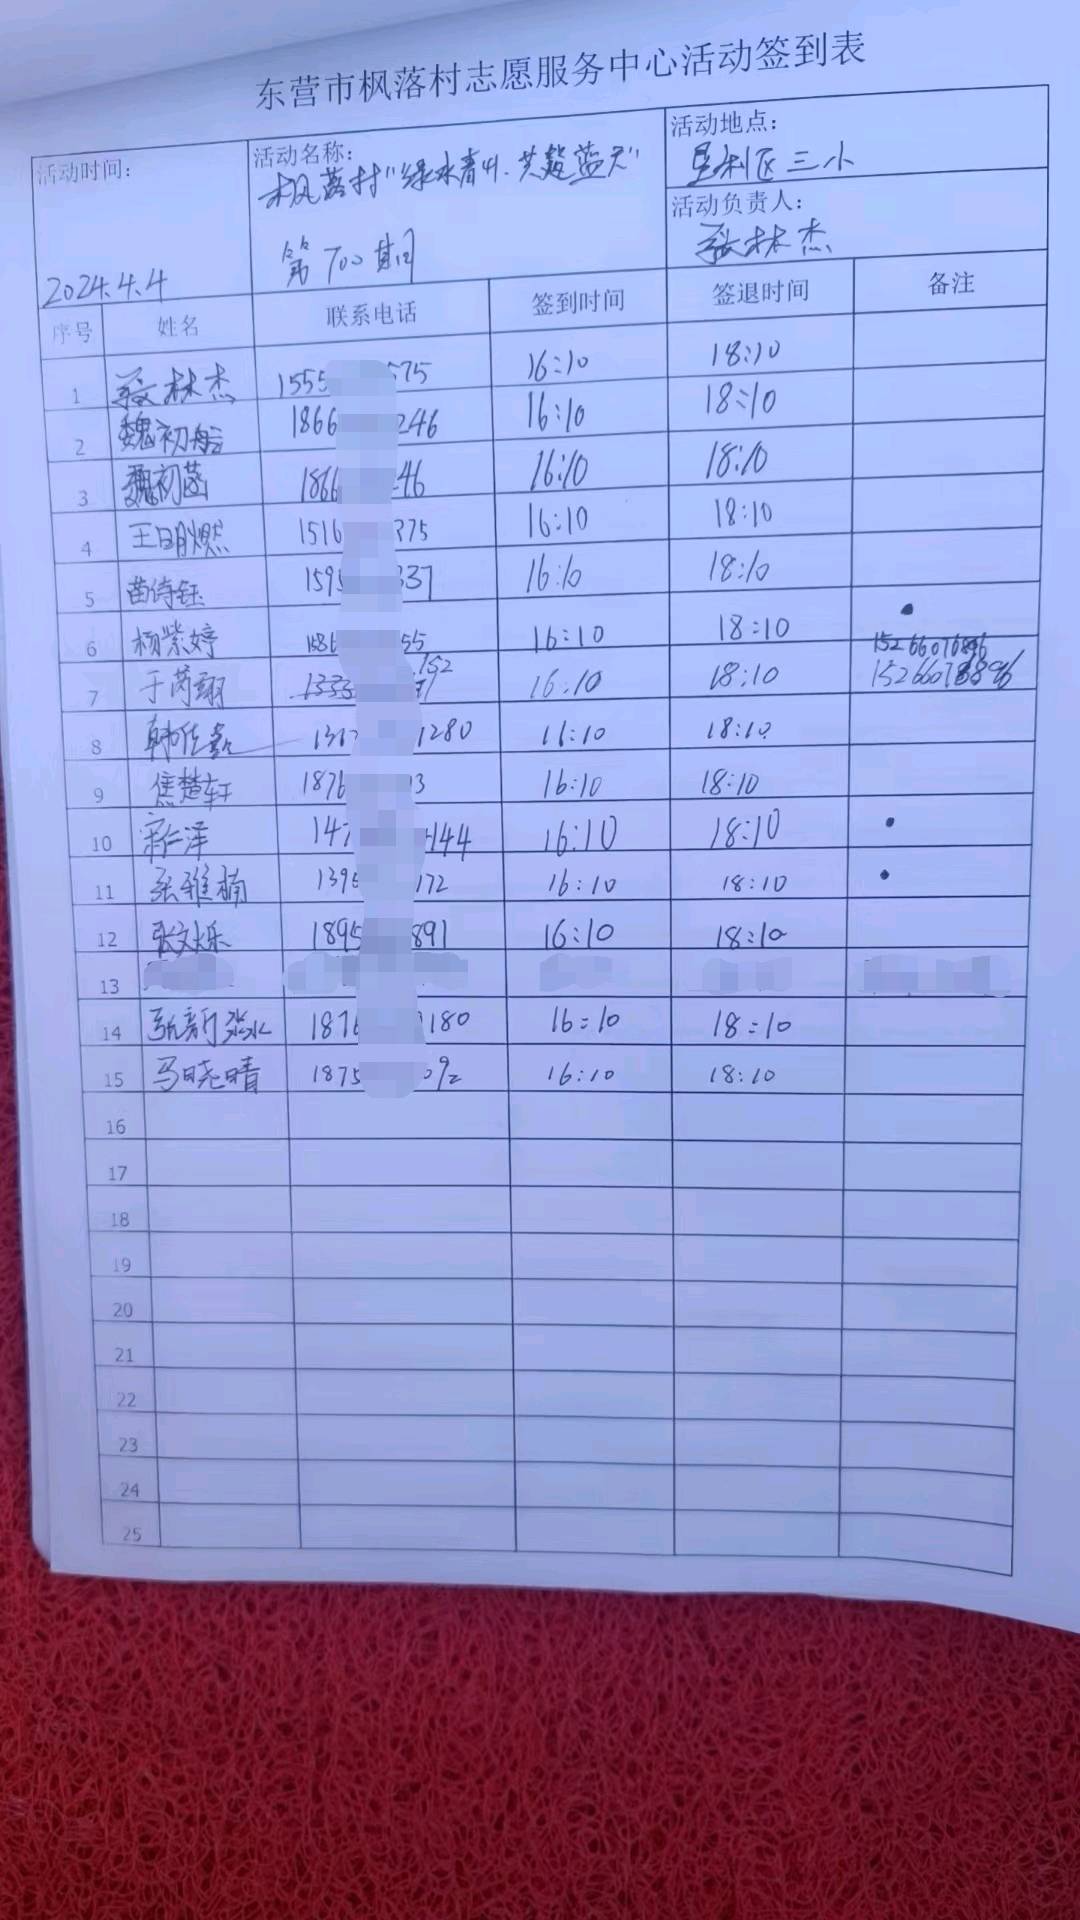 东营市枫落村志愿服务中心活动签到表
活动时间：
2024.4.4
活动名称：
枫落村"绿水青山.共筑蓝天"
第700期
活动地点：
垦利区三小
活动负责人：
张林杰
序号 姓名 联系电话 签到时间 签退时间 备注
1 张林杰 1555 575 16:10 18:10
2 魏初 1866 246 16:10 18:10
3 魏初菡 1866 46 16:10 18:10
4 王明燃 1516 375 16:10 18:10
5 苗诗钰 1595 337 16:10 18:10
6 杨紫婷 186 55 16:10 18:10 15266076896
7 于芮翊 1333 152 16:10 18:10 15266078896
8 韩佳 136 1280 16:10 18:10
9 焦楚轩 1876 3 16:10 18:10
10 宋仁泽 147 144 16:10 18:10
11 张雅楠 1395 172 16:10 18:10
12 张文乐 1895 891 16:10 18:10
13
14 1876 180 16:10 18:10
15 马晓晴 1875 092 16:10 18:10
16
17
18
19
20
21
22
23
24
25